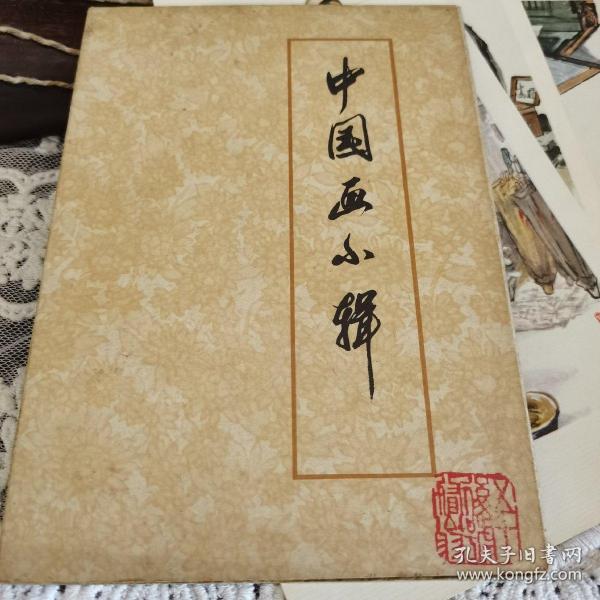 中国画小辑
孔夫子旧书网
www.kongfz.com